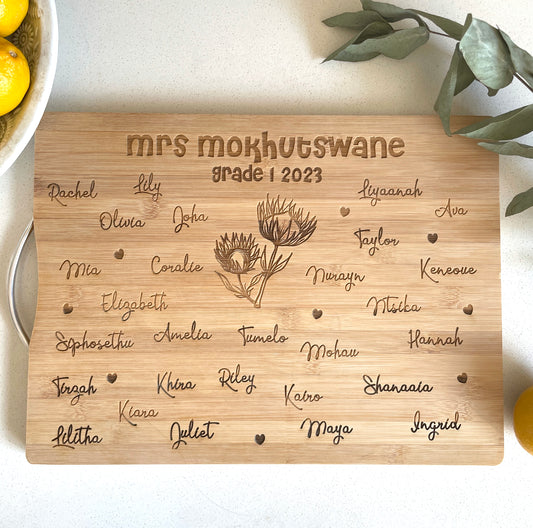 mrs mokhutswane
grade 1 2023
Rachel Lily Liyaanah
Olivia Joha Ava
Taylor
Mia Coralie Nurayn Keneoue
Elizabeth Ntsika
Siphosethu Amelia Tumelo Mohau Hannah
Tirzah Khira Riley Kairo Shanaaia
Kiara
Lilitha Juliet Maya Ingrid